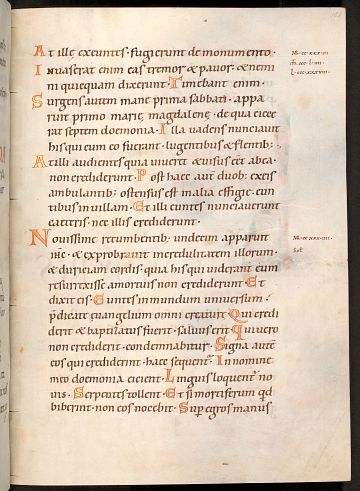 At illę exeuntes · fugierunt de monumento ·
Inuaserat enim eas tremor & pauor · & nemi
ni quicquam dixerunt · Timebant enim ·
Surgens autem mane prima sabbati · appa
ruit primo marię magdalenę · de qua eiece
rat septem doemonia · Illa uadens nunciauit
his qui cum eo fuerant · lugentibus & flentib; ·
At illi audientes quia uiueret & uisus esset ab ea ·
non crediderunt · Post haec aut duob; exeis
ambulantib; ostensus est in alia effigie · eun
tibus in uillam · Et illi euntes nunciauerunt
caeteris · nec illis crediderunt ·
Nouissime recumbentib; undecim apparuit
ihc · & exprobrauit incredulitatem illorum ·
& duriciam cordis · quia his qui uiderant eum
resurrexisse a mortuis non crediderunt · Et
dixit eis · Euntes in mundum uniuersum
p̄dicate euangelium omni creaturę · Qui credi
derit & baptizatus fuerit · saluus erit · Qui uero
non crediderit · condemnabitur · Signa autē
eos qui crediderint · haec sequent · In nomine
meo doemonia eicient · Linguis loquent no
uis · Serpentes tollent · Et si mortiferum qd
biberint · non eos nocebit · Sup egros manus